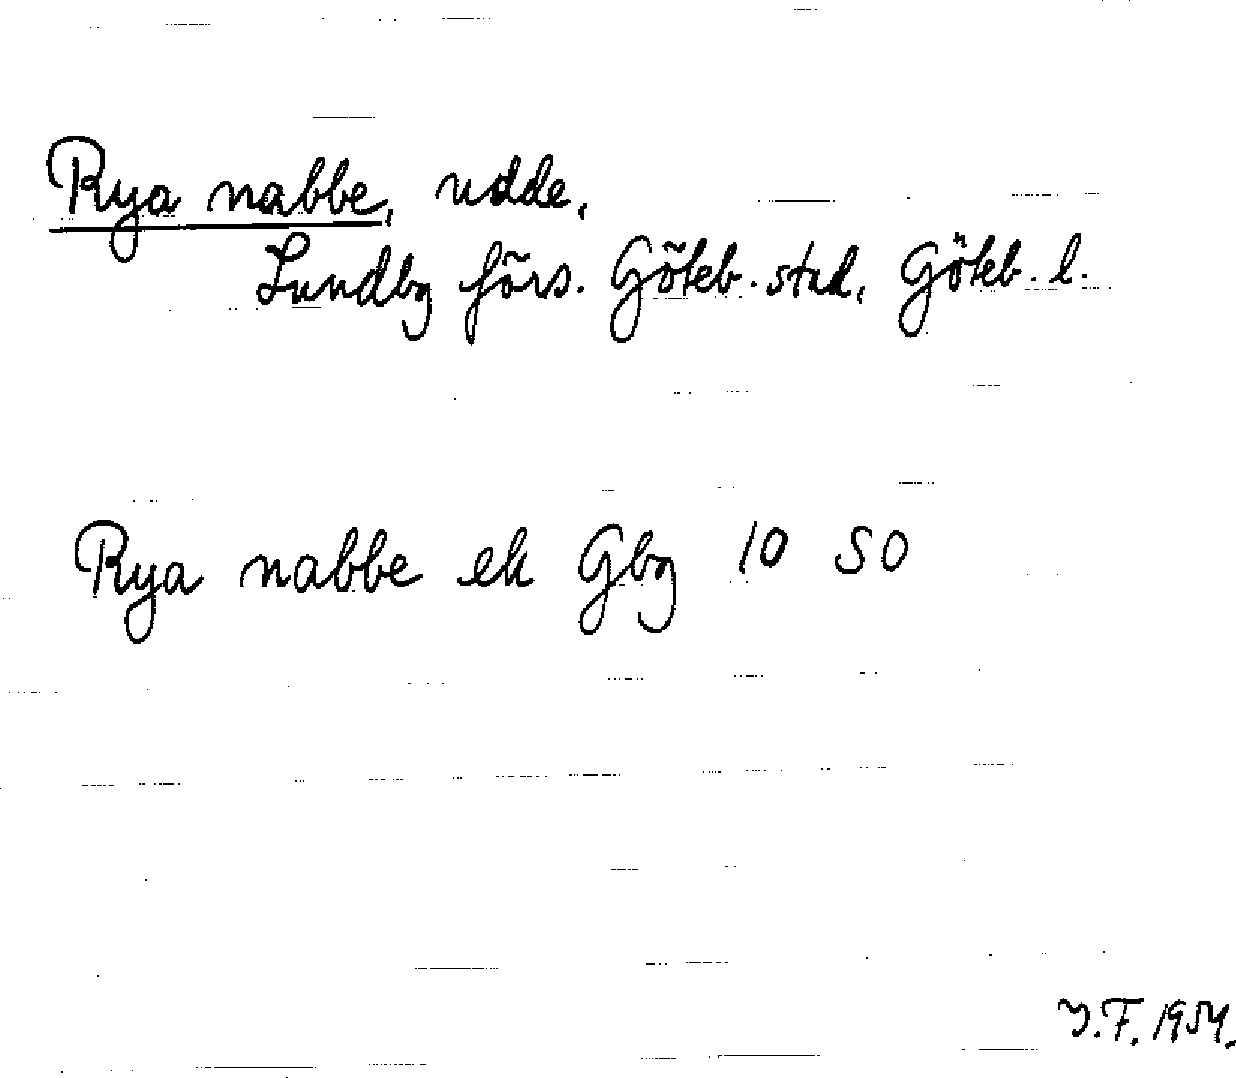 Rya nabbe, udde,
Lundby förs. Göteb. stad, Göteb. l.
Rya nabbe ek Gbg 10 SO
I.F. 1954.